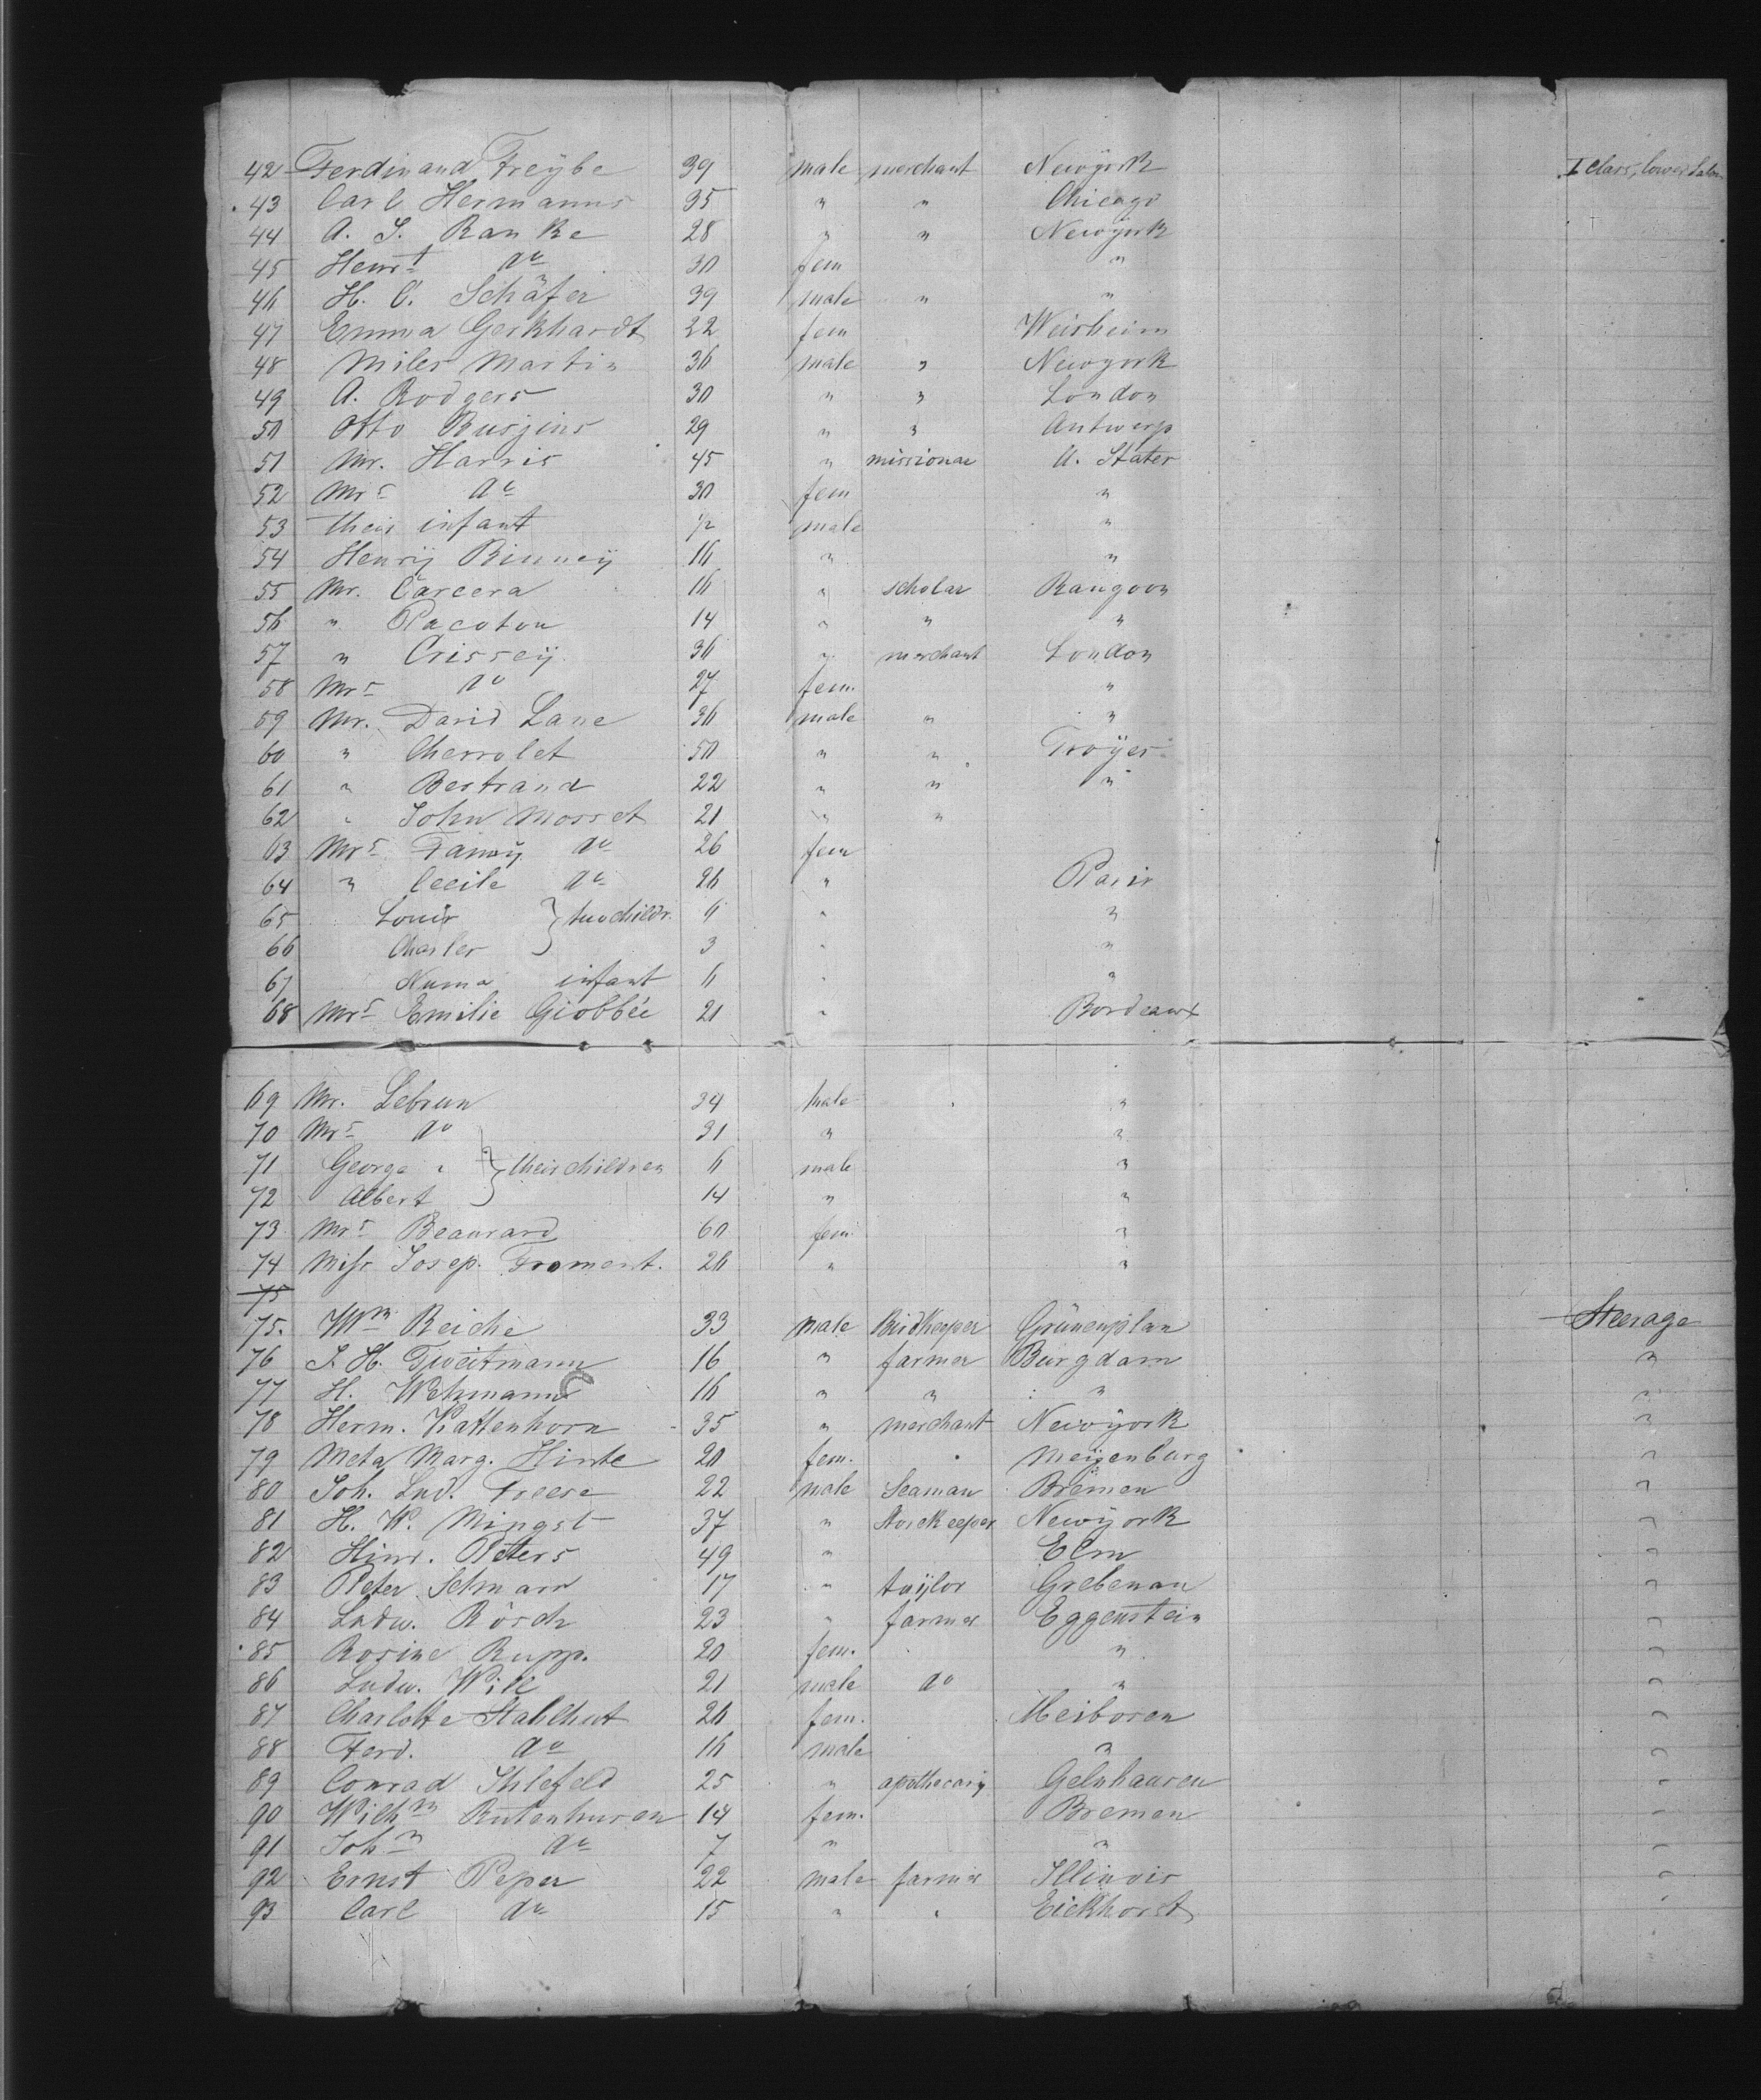 42 Ferdinand Freÿbe 39 male merchant Newÿork I Class, lower Saloon
43 Carl Hermanns 35 " " Chicago
44 A. S. Ranke 28 " " Newÿork
45 Henrt do 30 fem "
46 H. C. Schäfer 39 male " "
47 Emma Gerkhardt 22 fem Weisheim
48 Miles Martin 36 male " Newyork
49 A. Rodgers 30 " " London
50 Otto Busjins 29 " " Antwerp
51 Mr. Harris 45 " missionar U. States
52 Mrs do 30 fem "
53 their infant 1/2 male "
54 Henrÿ Binneÿ 16 " "
55 Mr. Carcera 16 " scholar Rangoon
56 " Pacoton 14 " " "
57 " Crisseÿ 36 " merchant London
58 Mrs do 27 fem. "
59 Mr. David Lane 36 male " "
60 " Chevrolet 50 " " Troÿes
61 " Bertrand 22 " " "
62 " John Mosset 21 " "
63 Mrs Fanny do 26 fem
64 " Cecile do 26 " Paris
65 Louis } two childr. 9 " "
66 Charles 3 " "
67 Numa infant 6 " "
68 Mrs Emilie Giobbée 21 " Bordeaux
69 Mr. Lebrun 34 male "
70 Mrs do 31 " "
71 George " } their children 6 male "
72 Albert 14 " "
73 Mrs Beaurard 60 fem. "
74 Miss Josep. Froment. 26 " "
75
75. Wm Reiche 33 male Birdkeeper Grünenplan Steerage
76 J. H. Tweitmann 16 " farmer Burgdam "
77 H. Wehmann 16 " " " "
78 Herm. Kattenhorn 35 " merchant Newÿork "
79 Meta Marg. Hinte 20 fem. Meÿenburg "
80 Joh. Lud. Freese 22 male Seaman Bremen "
81 H. W. Mingst 37 " Storekeeper Newÿork "
82 Hinr. Peters 49 " Elm "
83 Peter Schmarr 17 " taÿlor Grebenau "
84 Ludw. Rösch 23 " farmer Eggenstein "
85 Rosine Rupp. 20 fem. " "
86 Ludw. Will 21 male do " "
87 Charlotte Stahlhut 20 fem. Meiborsen "
88 Ferd. do 16 male " "
89 Conrad Ihlefeld 25 " apothecary Gelnhausen "
90 Wilhm Rutenhusen 14 fem. Bremen "
91 John do 7 " " "
92 Ernst Peper 22 male farmer Illinois "
93 Carl do 15 " " Eickhorst "